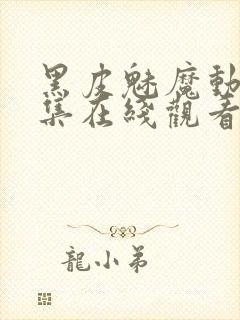 黑皮魅魔動
集在綫觀看
龍小弟